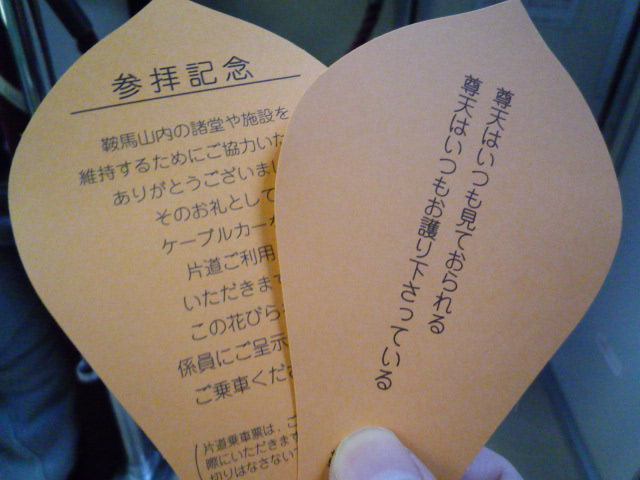 参拝記念
鞍馬山内の諸堂や施設を
維持するためにご協力いた
ありがとうございまし
そのお礼として
ケーブルカー
片道ご利用
いただきます
この花びら
係員にご呈示
ご乗車くだ
(片道乗車票は、こ
際にいただきます
切りはなさない
尊天はいつも見ておられる
尊天はいつもお護り下さっている